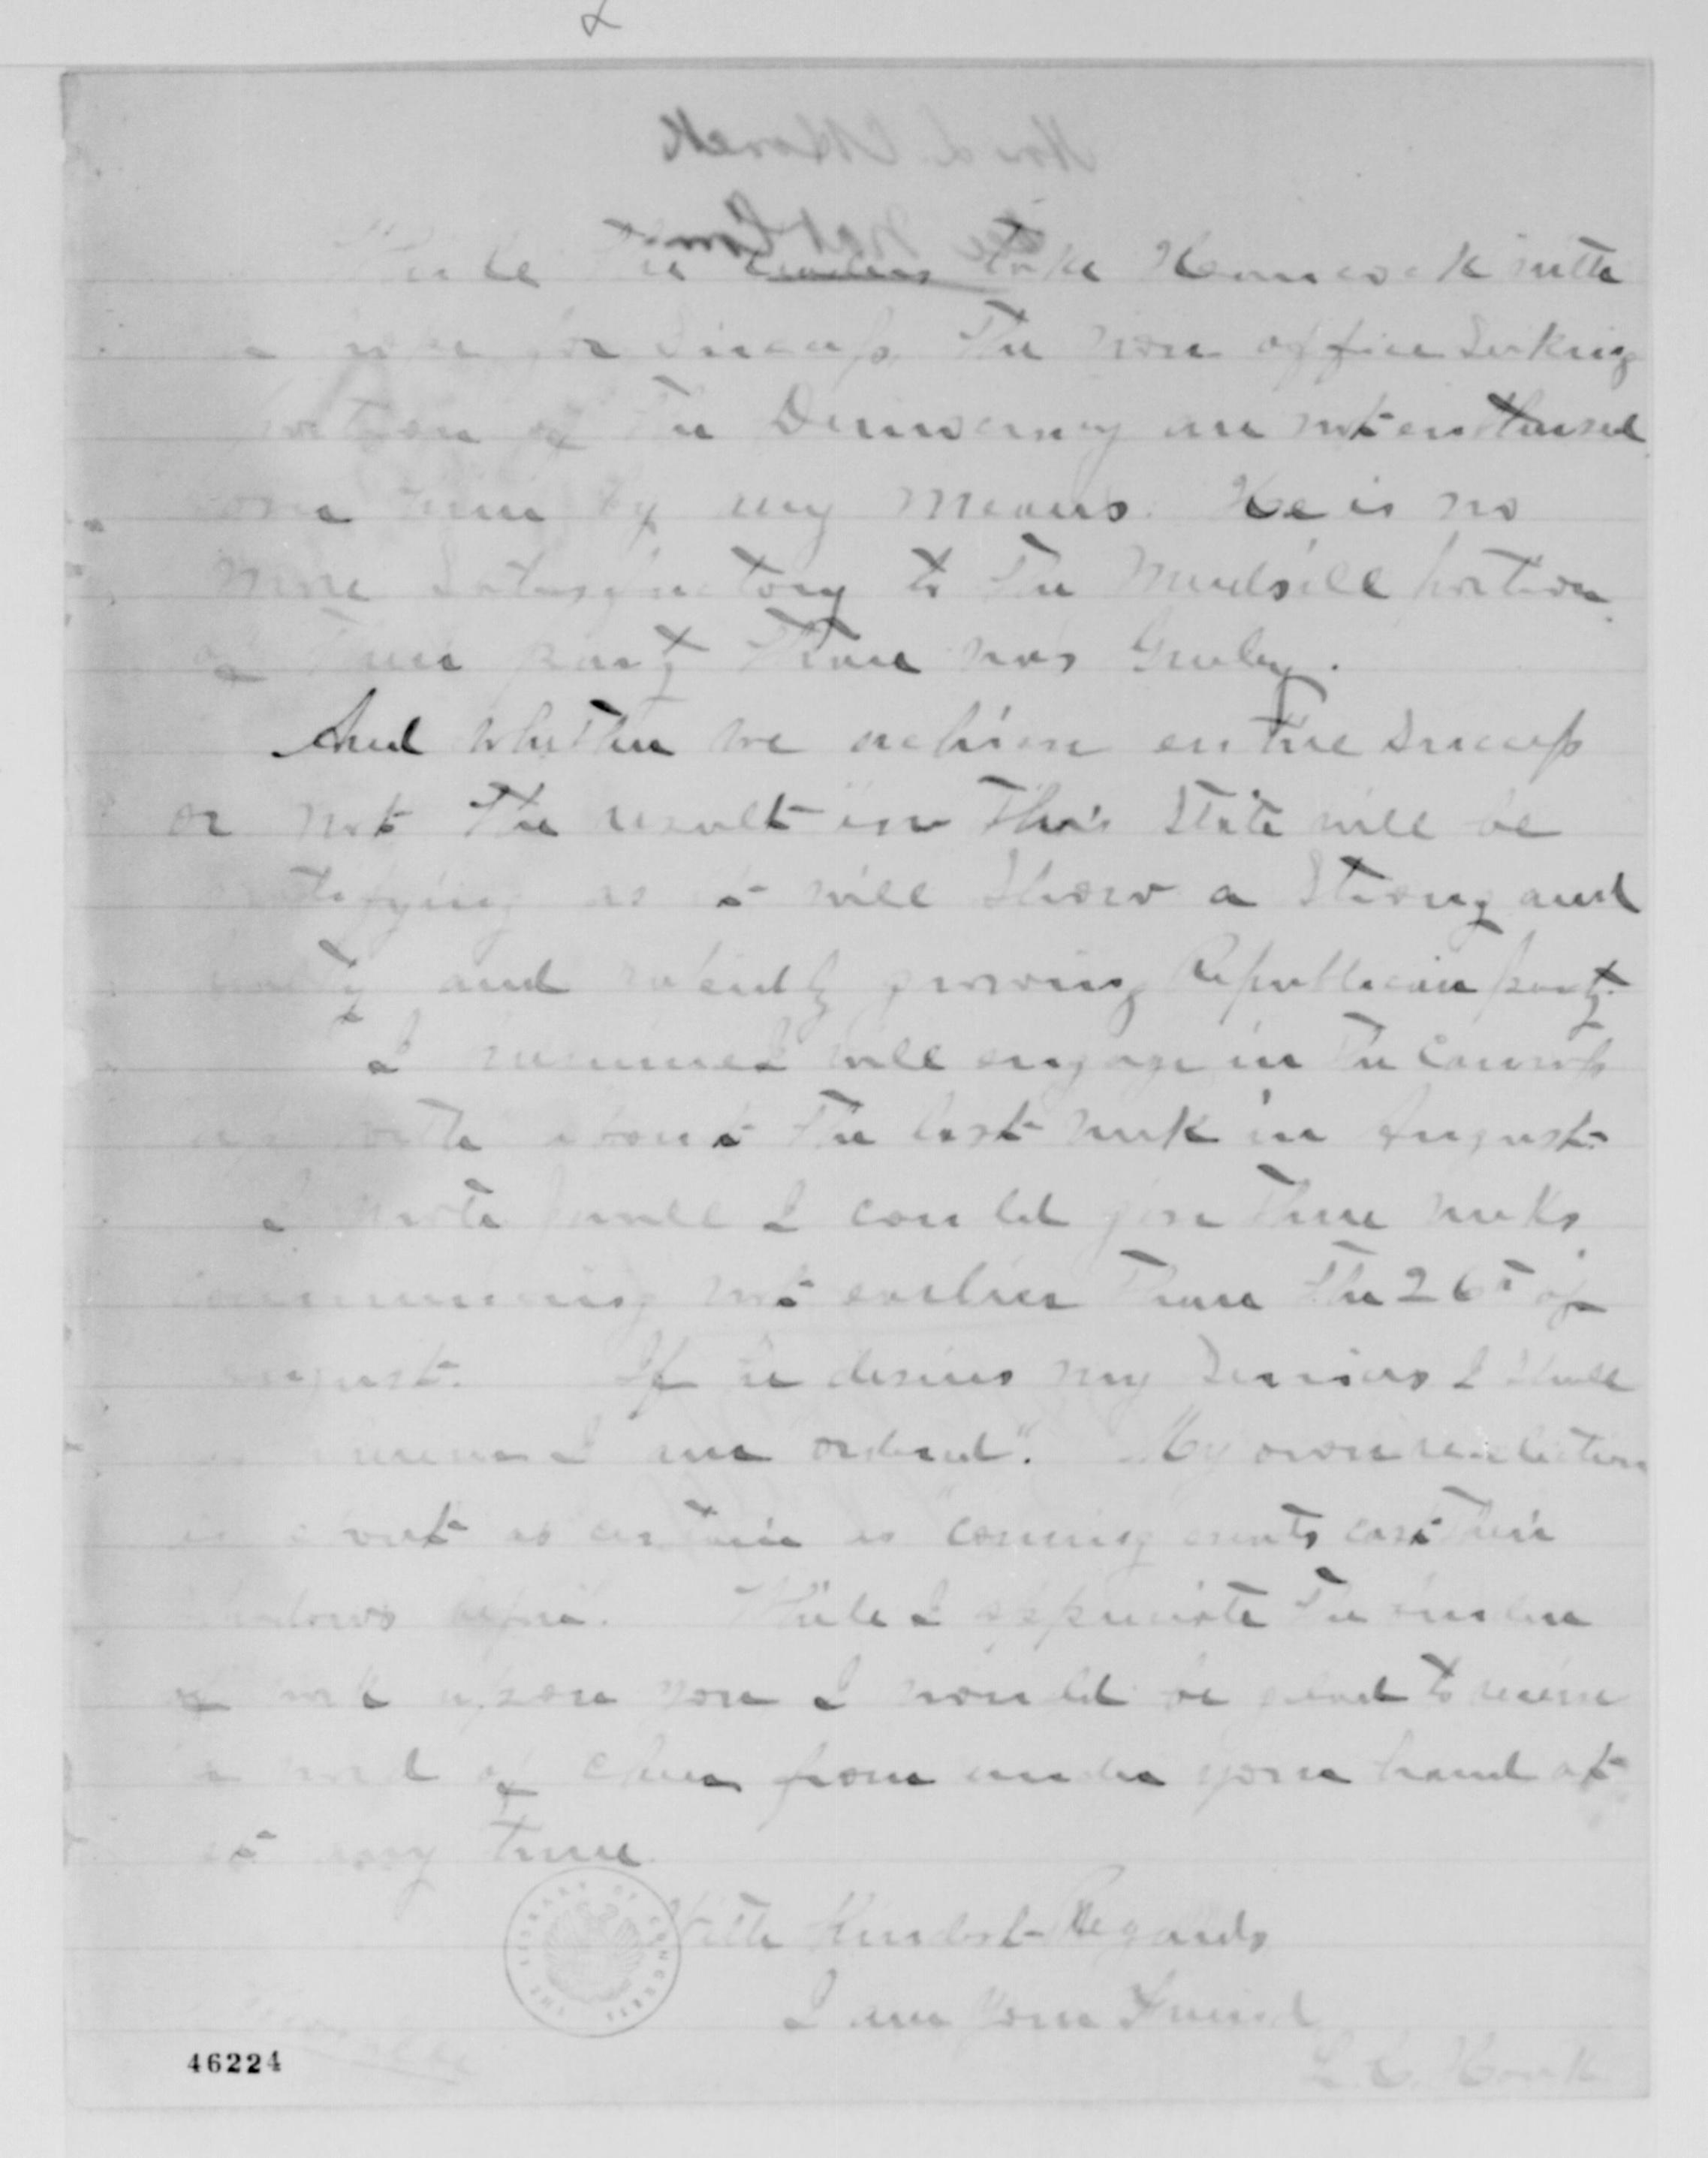 While the leaders take Hancock with
a view for Success, the non office Seeking
portion of the Democracy are not enthused
over him by any means. He is no
more Satisfactory to the Mudsill portion
of their party than was Greeley.
And whether we achieve entire Success
or not the result in this State will be
gratifying as it will show a Strong and
and rapidly growing Republican party.
I presume I will engage in the Canvass
about the last week in August.
I wrote Jewell I could give three weeks
commencing not earlier than the 26th of
August. If he desires my Services I Shall
I am ordered". My own re-election
is about as certain as "coming events cast their
shadows before". While I appreciate the burden
of work upon you I would be glad to receive
a word of cheer from under your hand at
at any time
With Kindest Regards
I am your Friend
L. C. Houk
THE LIBRARY OF CONGRESS
46224